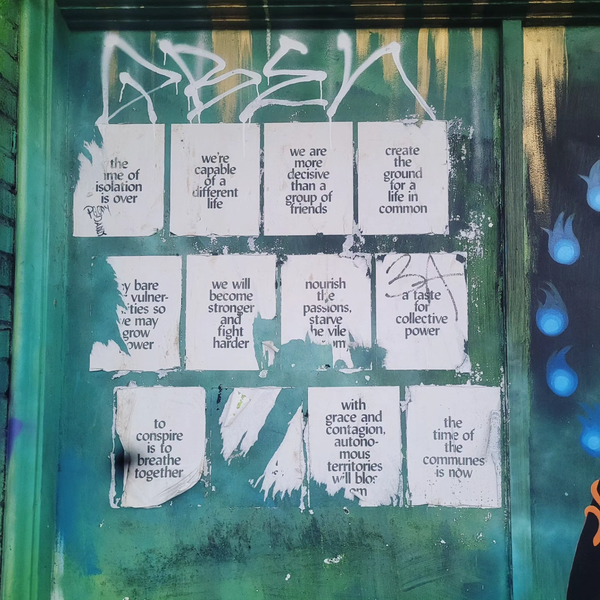 OPEN
the
me of
isolation
is over
we're
capable
of a
different
life
we are
more
decisive
than a
group of
friends
create
the
ground
for a
life in
common
y bare
vulner-
ties so
we may
grow
ower
we will
become
stronger
and
fight
harder
nourish
the
passions,
starve
he vile
om
3A
a taste
for
collective
power
to
conspire
is to
breathe
together
with
grace and
contagion,
autono-
mous
territories
will blos
om
the
time of
the
communes
is now